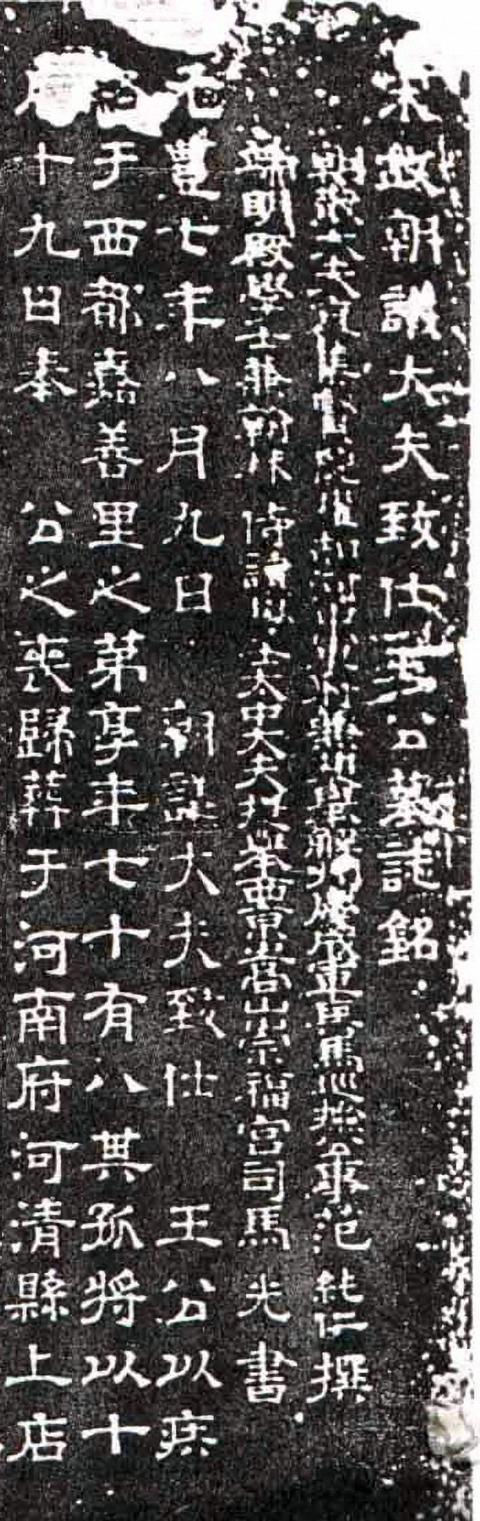 宋故朝議大夫致仕王公墓誌銘
朝散大夫充集賢院知河中府兼提舉解州慶成軍兵馬巡撿公事范 純仁撰
端明殿學士兼翰林 侍讀學士太中大夫提舉西京嵩山崇福宮司馬 光 書
元豐七年八月九日 朝議大夫致仕 王公以疾
終于西都嘉善里之第享年七十有八其孤將以十
月十九日奉 公之喪歸葬于河南府河清縣上店